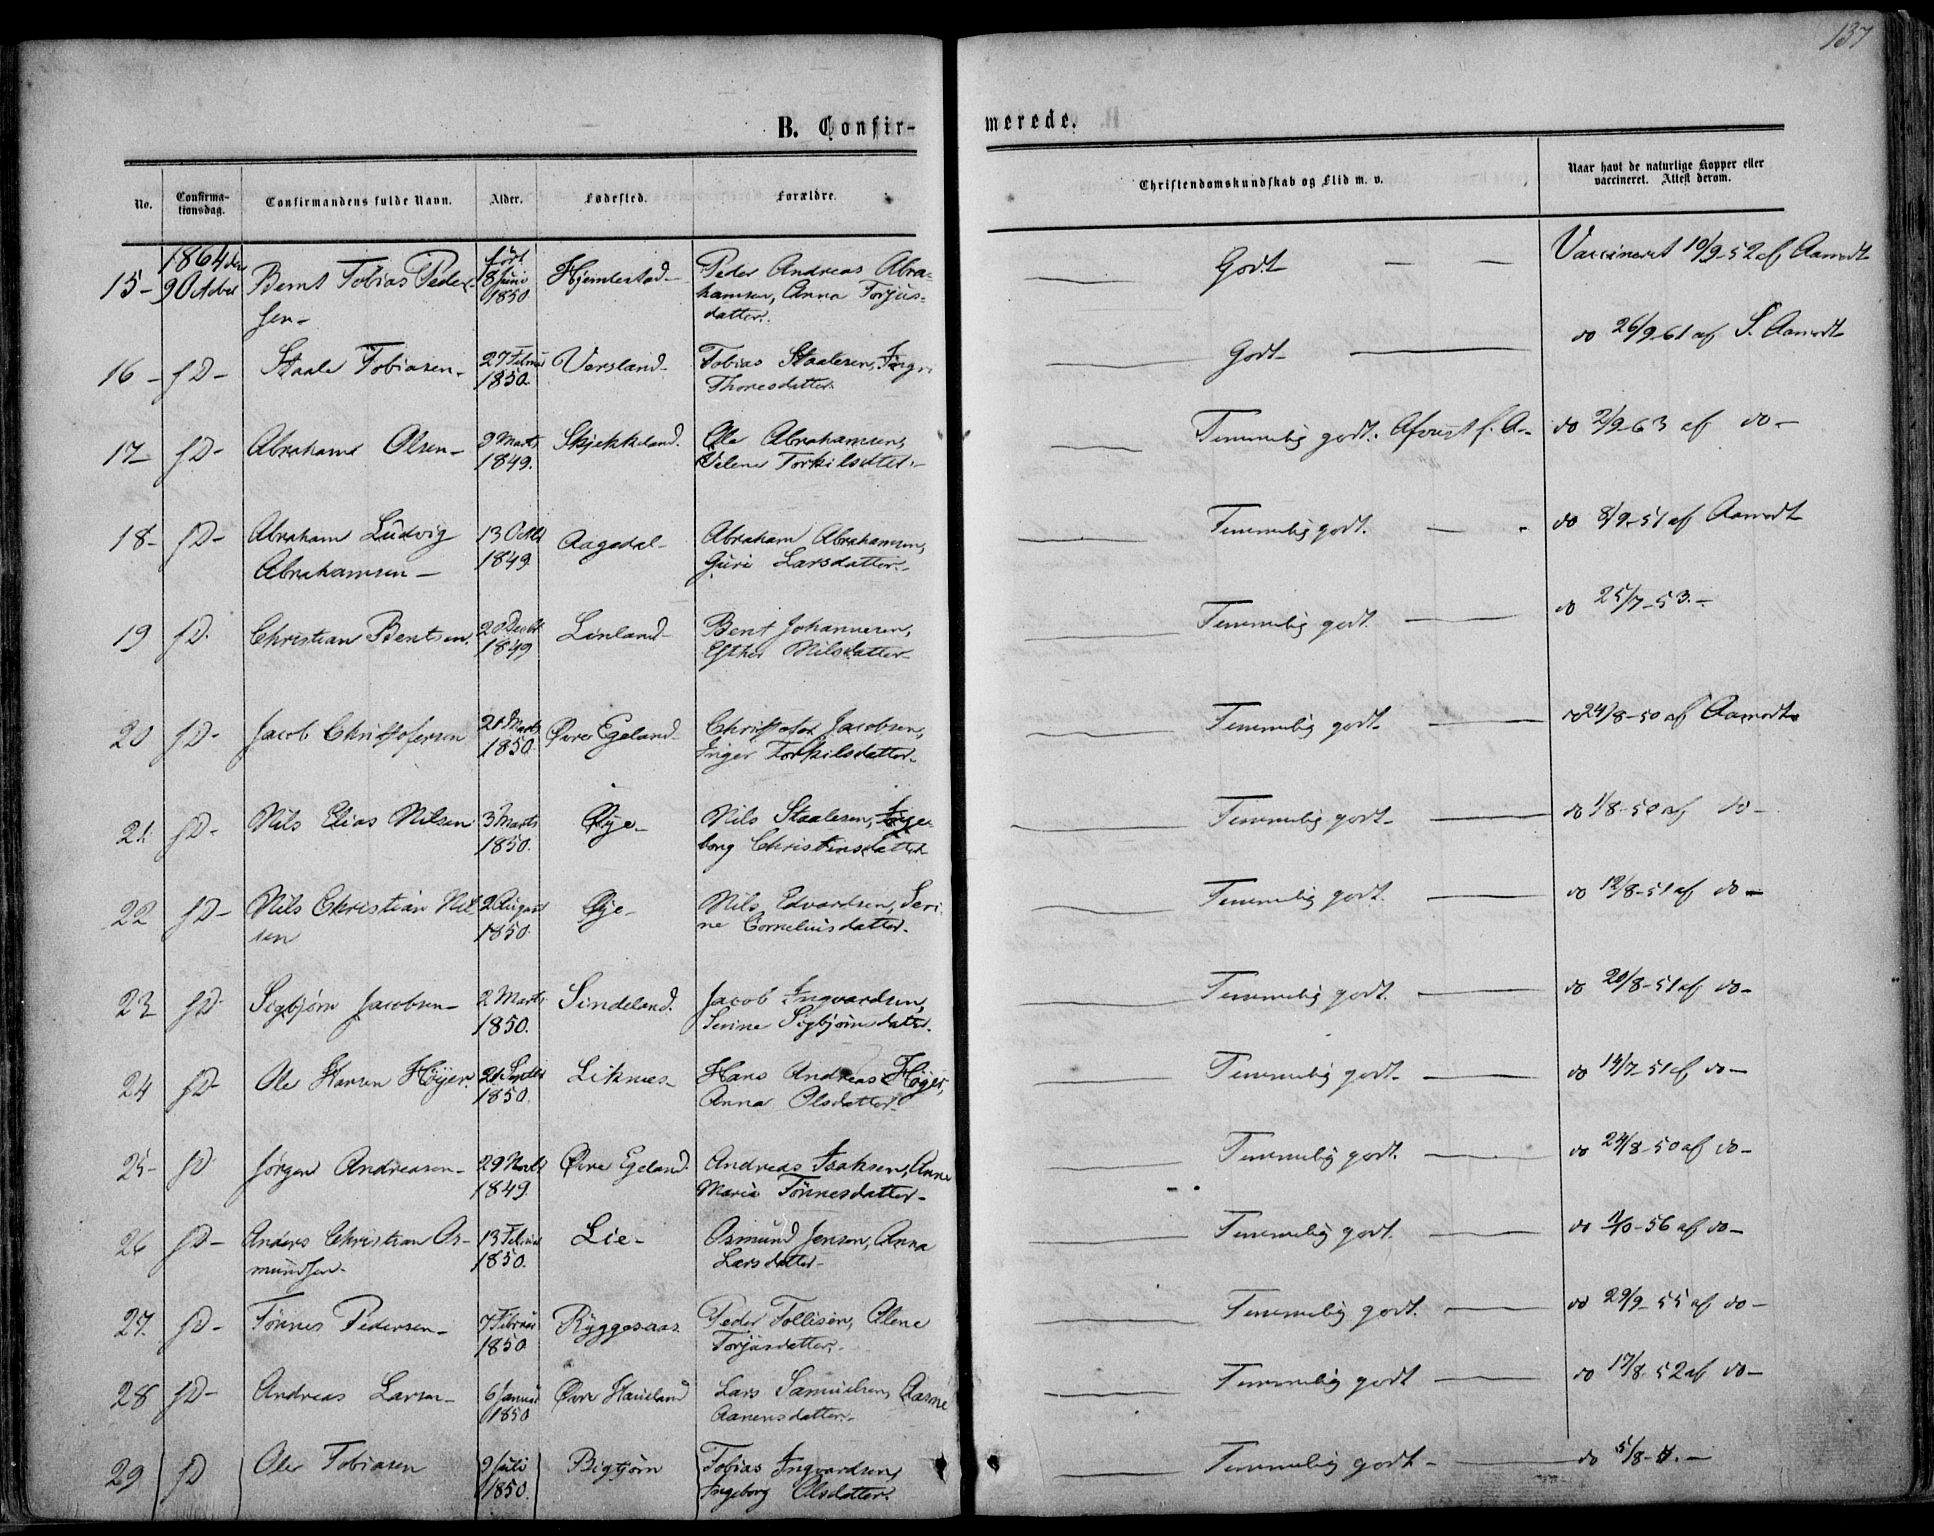 137
B. Confirmerede.
No. Confirmationsdag. Confirmandens fulde Navn. Alder. Fødested. Forældre. Christendomskundskab og Flid m. v. Naar havt de naturlige Kopper eller vaccineret. Attest derom.
15- 1864 den 9 October Bernt Tobias Pedersen- født 8 Juni 1850 Hjemlestad- Peder Andreas Abrahamsen, Anna Torjusdatter. Godt Vaccineret 10/9-52 af Aamodt
16- D- Staale Tobiasen- 27 Februar 1850. Versland- Tobias Staalesen, Thoresdatter. Godt- do 26/9-61 af S. Aamodt
17- D- Abraham Olsen- 9 Marts 1849. Skjekkeland. Ole Abrahamsen, Torkilsdtt- Temmelig godt. do 2/9-63 af do-
18- D- Abraham Ludvig Abrahamsen- 13 Octbr 1849. Aagedal- Abraham Abrahamsen, Guri Larsdatter- Temmelig godt. do 8/9-51 af Aamodt
19 D. Christian Bentsen. 20 Decbr 1849 Linland- Bent Johannesen, Esther Nilsdatter- Temmelig godt. do 25/7-53.-
20 D- Jacob Christofersen 21 Marts 1850. Øvre Egeland- Christofer Jacobsen, Inger Torkilsdatter- Temmelig godt. do 24/8-50 af Aamodt
21 D- Nils Elias Nilsen 3 Marts 1850. Øye- Nils Staalesen, Ingeborg Christensdatter Temmelig godt- do 1/8-50 af do-
22 D- Nils Christian Nilsen 2 August 1850. Øye- Nils Edvardsen, Serine Corneliusdatter. Temmelig godt. do 12/8-51 af do-
23 D- Sigbjørn Jacobsen- 2 Marts 1850. Sindeland. Jacob Ingvardsen, Serine Sigbjørnsdatter. Temmelig godt. do 20/8-51 af do-
24 D- Ole Hansen Høyer. 21 Septbr 1850. Liknes- Hans Andreas Høyer, Anna Olsdatter- Temmelig godt. do 14/7-51 af do-
25- D- Jørgen Andreasen- 29 Novbr 1849. Øvre Egeland. Andreas Isaksen, Anne Maria Tønnesdatter- Temmelig godt. do 24/8-50 af do-
26 D- Anders Christian Asmundsen- 13 Februar 1850. Lie- Asmund Jensen, Anna Larsdatter- Temmelig godt. do -56 af do-
27. D- Tønnes Pedersen- 7 Februar 1850 Ryggesaas. Peder Tollisen, Alene Torjusdatter. Temmelig godt. do 29/9-55 af do-
28 D- Andreas Larsen- 6 Januar 1850 Øvre Haugland Lars Samuelsen, Aasne Aanensdatter- Temmelig godt do 17/8-52 af do-
29 D Ole Tobiasen 9 Juli 1850. Bigtjørn Tobias Ingvardsen, Ingeborg Olsdatter. Temmelig godt- do 5/8-